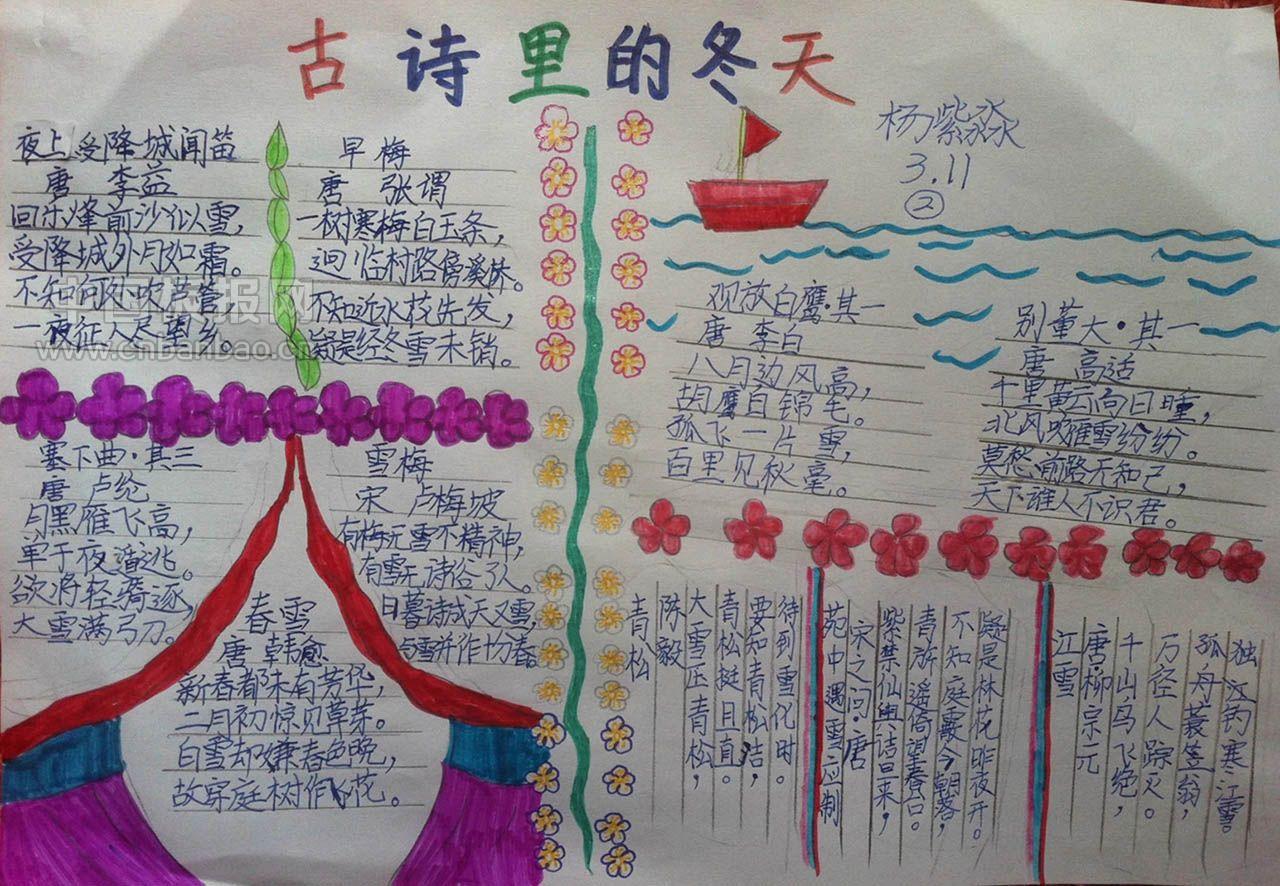 古诗里的冬天
杨紫淼
3.11
②
夜上受降城闻笛
唐 李益
回乐烽前沙似雪,
受降城外月如霜。
不知何处吹芦管,
一夜征人尽望乡。
早梅
唐 张谓
一树寒梅白玉条,
迥临村路傍溪桥。
不知近水花先发,
疑是经冬雪未销。
中国板报网
www.cnbanbao.cn
塞下曲·其三
唐 卢纶
月黑雁飞高,
单于夜遁逃。
欲将轻骑逐,
大雪满弓刀。
雪梅
宋 卢梅坡
有梅无雪不精神,
有雪无诗俗了人。
日暮诗成天又雪,
与雪并作十分春。
春雪
唐 韩愈
新春都未有芳华,
二月初惊见草芽。
白雪却嫌春色晚,
故穿庭树作飞花。
观放白鹰·其一
唐 李白
八月边风高,
胡鹰白锦毛。
孤飞一片雪,
百里见秋毫。
别董大·其一
唐 高适
千里黄云白日曛,
北风吹雁雪纷纷。
莫愁前路无知己,
天下谁人不识君。
青松
陈毅
大雪压青松,
青松挺且直。
要知青松洁,
待到雪化时。
苑中遇雪应制
宋之问·唐
紫禁仙舆诘旦来,
青旂遥倚望春台。
不知庭霰今朝落,
疑是林花昨夜开。
江雪
唐·柳宗元
千山鸟飞绝,
万径人踪灭。
孤舟蓑笠翁,
独江钓寒江雪。